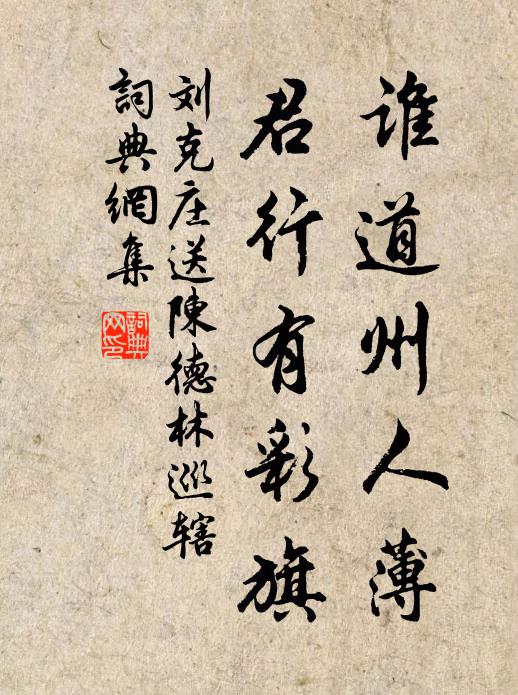 谁道州人薄
君行有彩旗
刘克庄送陳德林巡辖
詞典網集
詞典网印